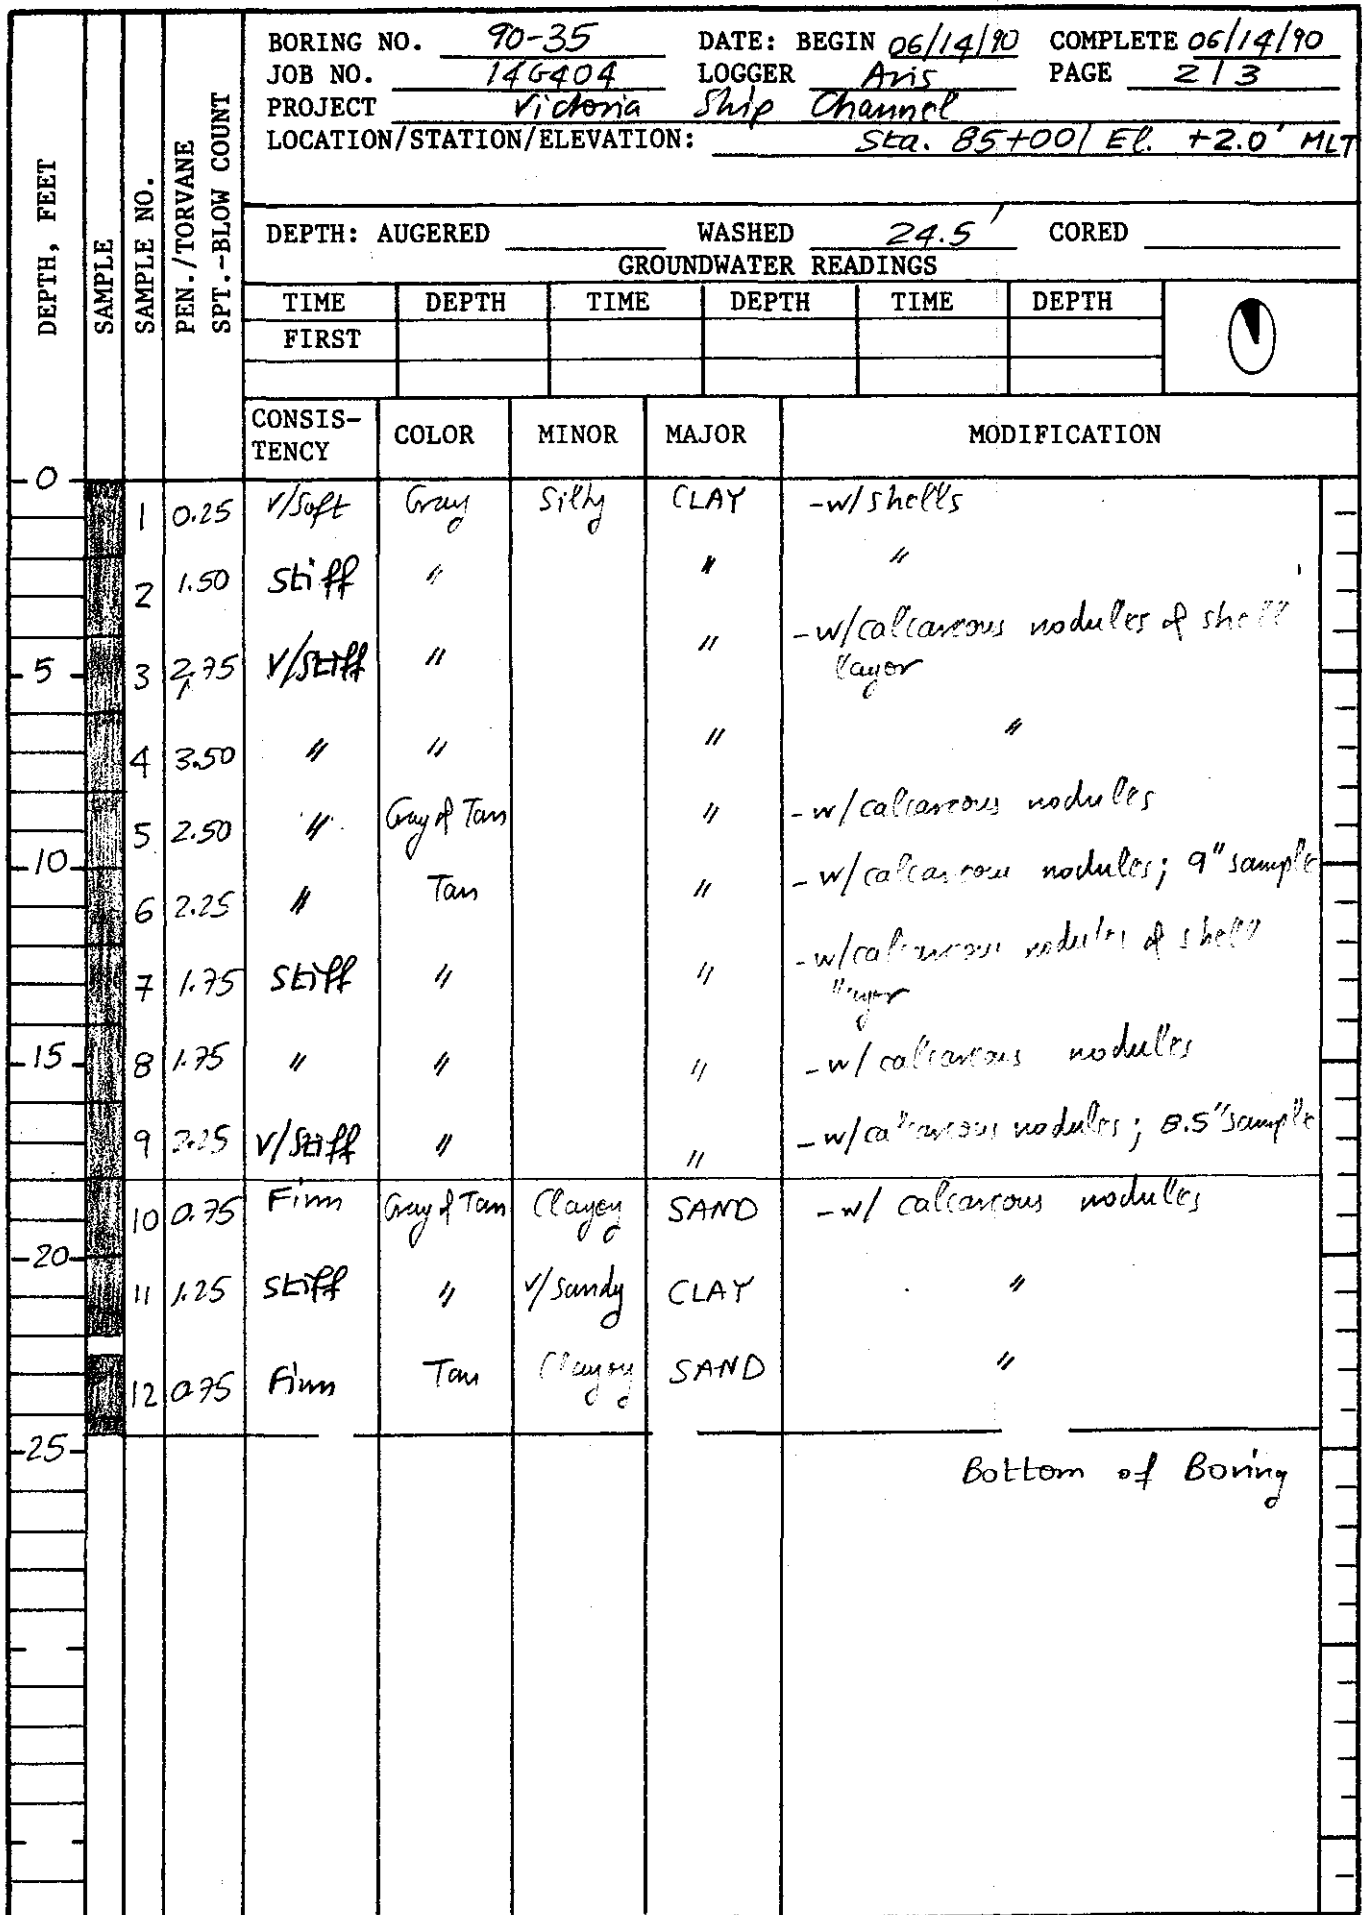 BORING NO. 90-35 DATE: BEGIN 06/14/90 COMPLETE 06/14/90
JOB NO. 14G404 LOGGER Aris PAGE 2/3
PROJECT Victoria Ship Channel
LOCATION/STATION/ELEVATION: Sta. 85+00/ El. +2.0' MLT
DEPTH: AUGERED WASHED 24.5' CORED
GROUNDWATER READINGS
TIME DEPTH TIME DEPTH TIME DEPTH
FIRST
DEPTH, FEET
SAMPLE
SAMPLE NO.
PEN./TORVANE
SPT.-BLOW COUNT
CONSIS-
TENCY COLOR MINOR MAJOR MODIFICATION
0
1 0.25 v/Soft Gray Silty CLAY -w/shells
2 1.50 Stiff " " "
5 3 2.75 V/Stiff " " -w/calcareous nodules & shell
layer
4 3.50 " " " "
5 2.50 " Gray & Tan " -w/calcareous nodules
10
6 2.25 " Tan " -w/calcareous nodules; 9" sample
7 1.75 Stiff " " -w/calcareous nodules & shell
layer
15 8 1.75 " " " -w/ calcareous nodules
9 2.25 V/Stiff " " -w/calcareous nodules; 8.5" sample
10 0.75 Firm Gray & Tan Clayey SAND -w/ calcareous nodules
20
11 1.25 Stiff " v/Sandy CLAY "
12 0.75 Firm Tan Clayey SAND "
25
Bottom of Boring